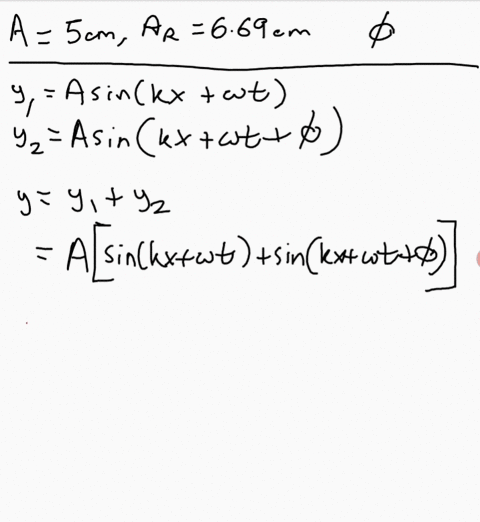 A = 5cm, A_R = 6.69cm ϕ
y₁ = A sin(kx + ωt)
y₂ = A sin(kx + ωt + ϕ)
y = y₁ + y₂
= A[sin(kx+ωt)+sin(kx+ωt+ϕ)]